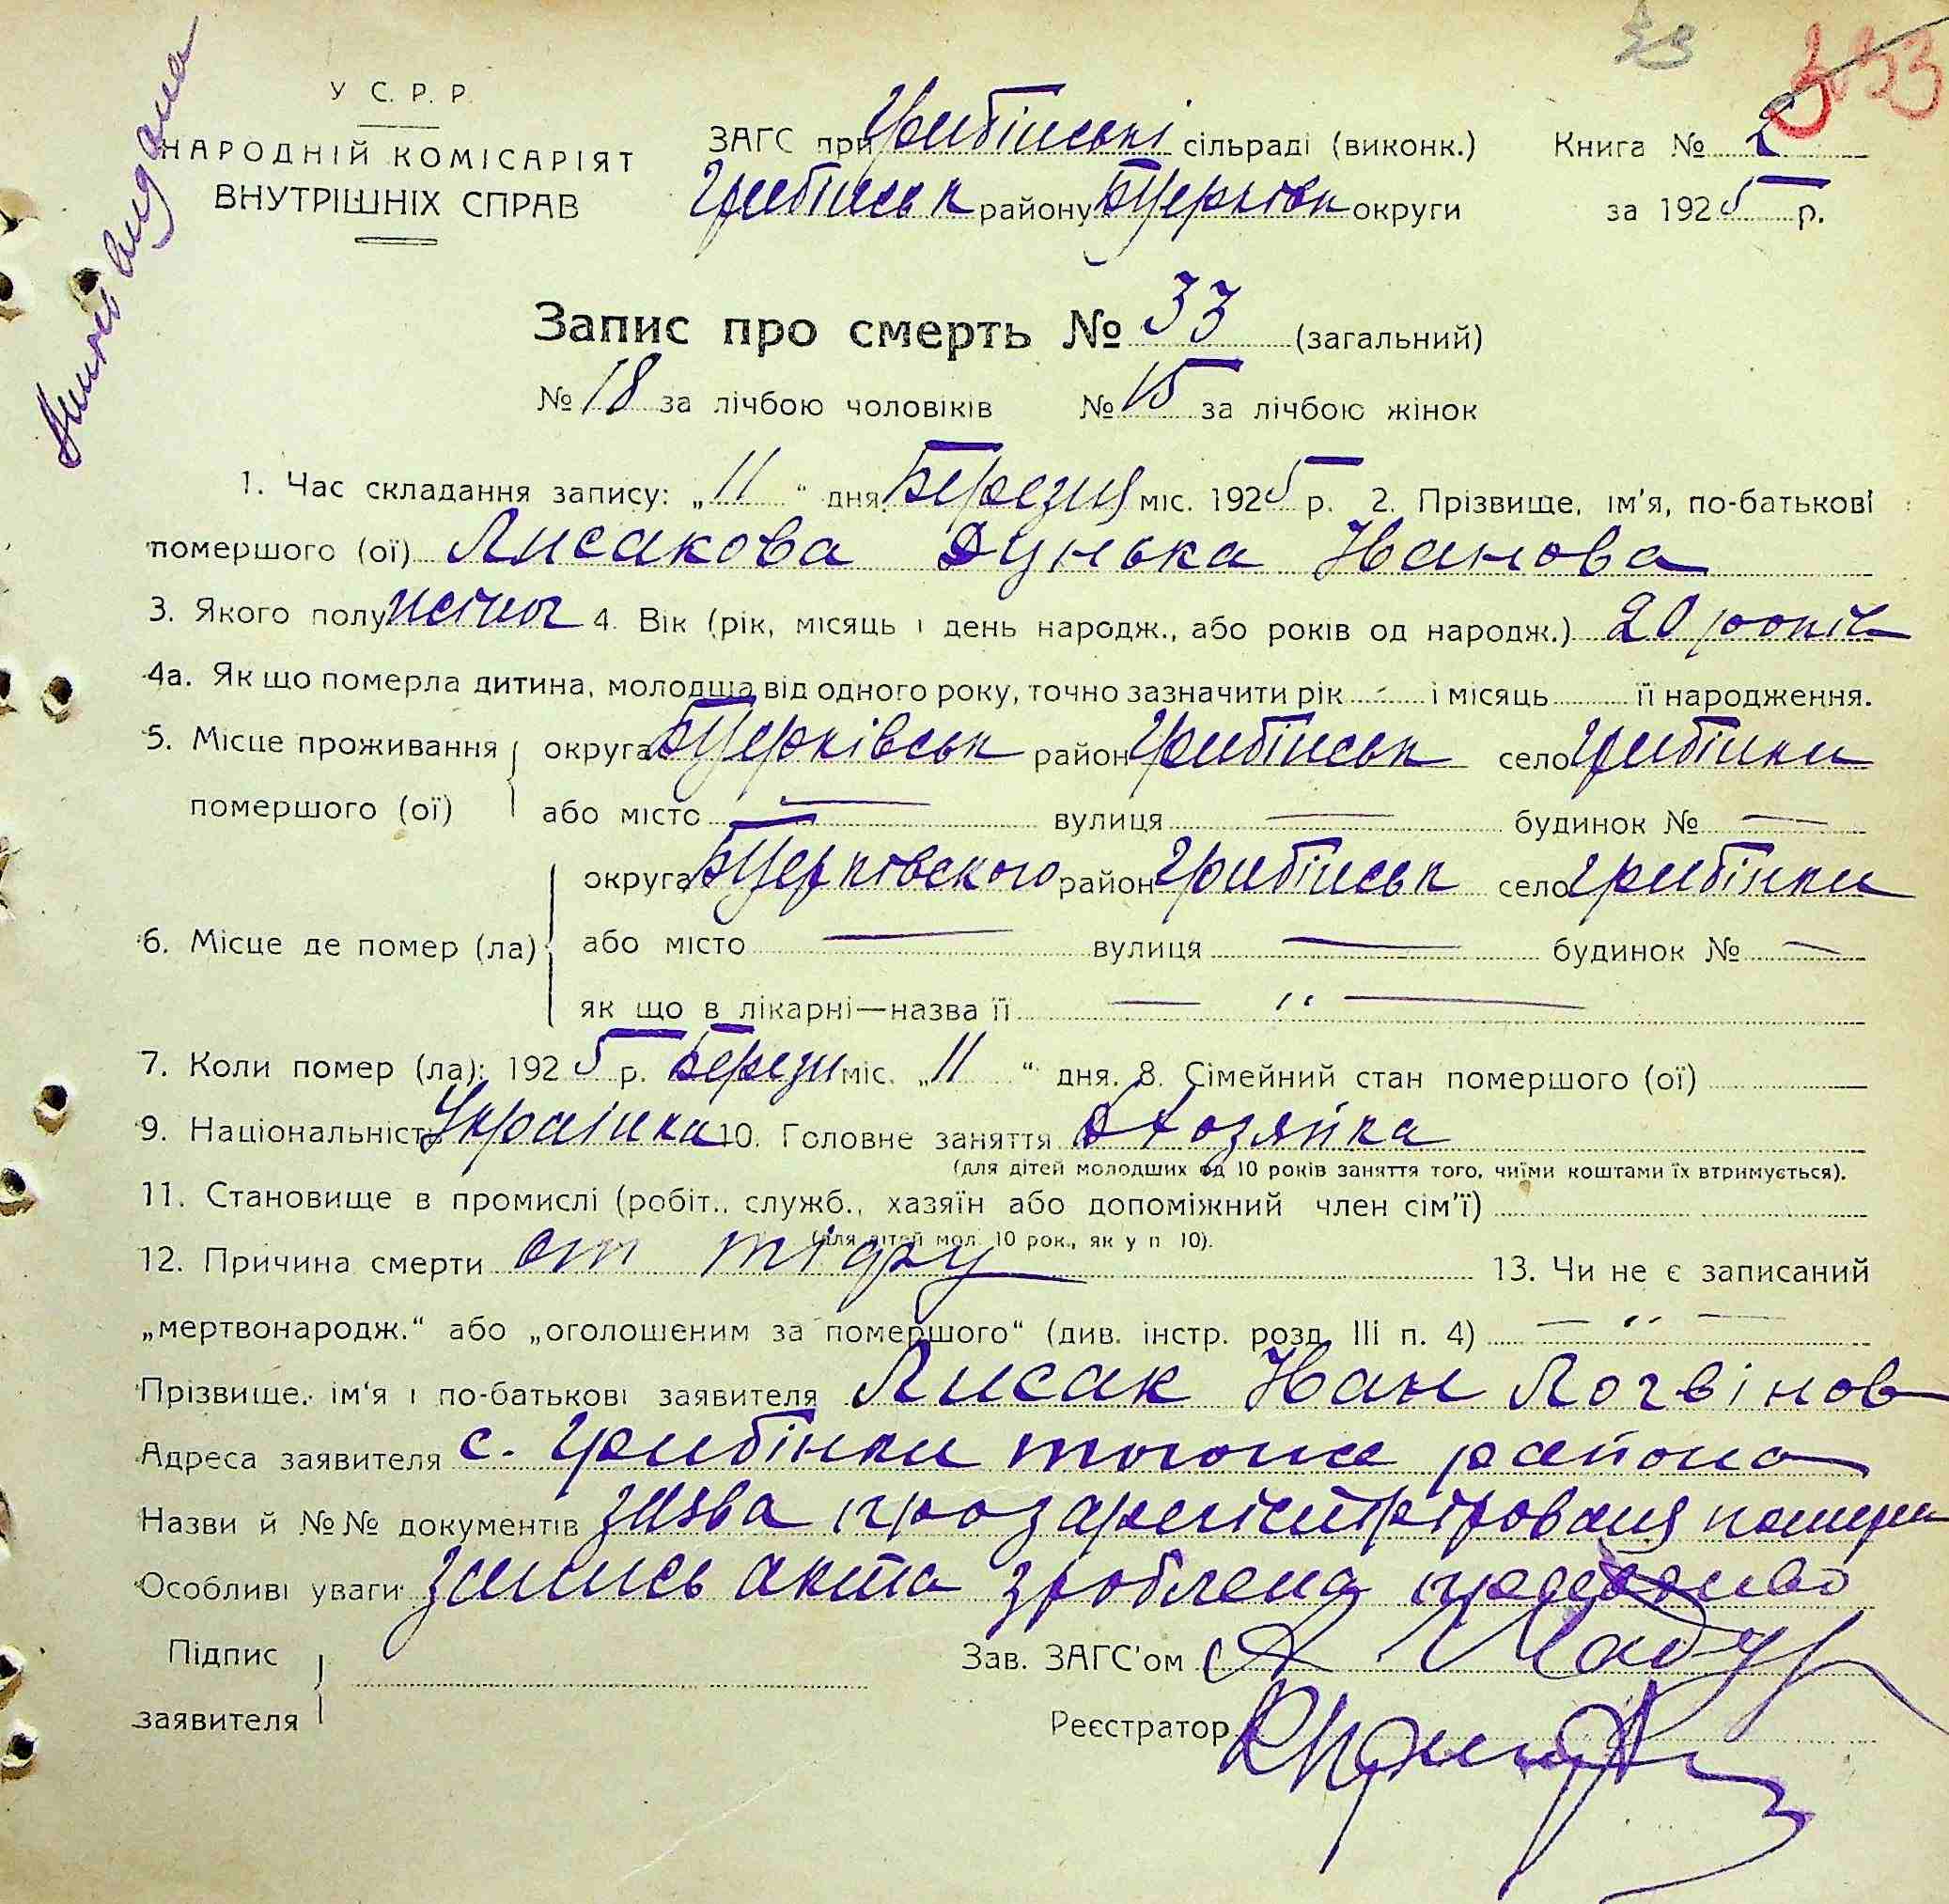 У С. Р. Р.
НАРОДНІЙ КОМІСАРІЯТ
ВНУТРІШНІХ СПРАВ
ЗАГС при Гребінські сільраді (виконк.)
Гребінськ району БЦерковк округи
Книга № 2
за 1925 р.
Запис про смерть № 33 (загальний)
№ 18 за лічбою чоловіків № 15 за лічбою жінок
1. Час складання запису: „11“ дня Березня міс. 1925 р. 2. Прізвище, ім'я, по-батькові
помершого (ої) Лисакова Дунька Иванова
3. Якого полу жіночь 4. Вік (рік, місяць і день народж., або років од народж.) 20 років
4а. Як що померла дитина, молодша від одного року, точно зазначити рік - і місяць її народження.
5. Місце проживання помершого (ої) округа БЦерківськ район Гребінськ село Гребінки
або місто — вулиця — будинок № —
6. Місце де помер (ла) округа БЦерковского район Гребінськ село Гребінки
або місто — вулиця — будинок № —
як що в лікарні—назва її — „ —
7. Коли помер (ла): 1925 р. Березн міс. „11“ дня. 8. Сімейний стан помершого (ої)
9. Національність Українка 10. Головне заняття Дхозяйка
(для дітей молодших од 10 років заняття того, чиїми коштами їх втримується).
11. Становище в промислі (робіт., служб., хазяїн або допоміжний член сім'ї)
(для дітей мол. 10 рок., як у п 10).
12. Причина смерти от тіфу 13. Чи не є записаний
„мертвонародж.“ або „оголошеним за помершого“ (див. інстр. розд. III п. 4) — „ —
Прізвище, ім'я і по-батькові заявителя Лисак Иван Логвінов
Адреса заявителя с. Гребінки того же района
Назви й №№ документів заява про зарегістріровання
Особливі уваги: запись акта зроблена
Підпис заявителя
Зав. ЗАГС'ом
Реєстратор